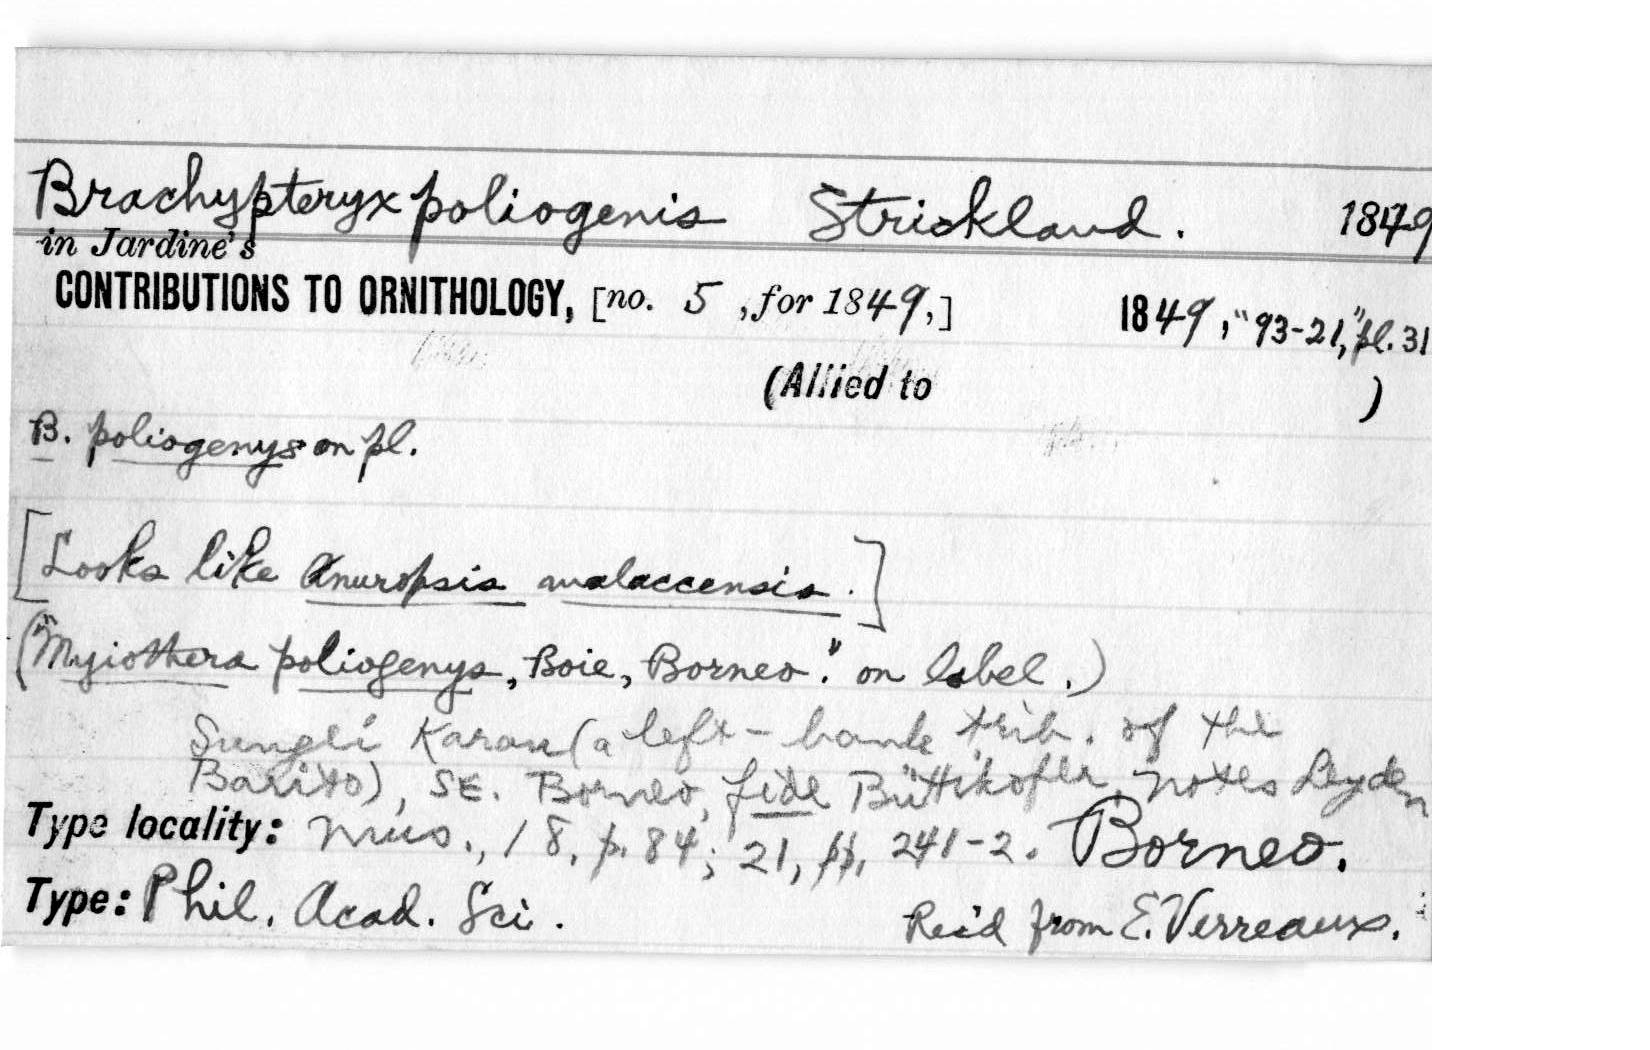 Brachypteryx poliogenis Strickland. 1849
in Jardine's
CONTRIBUTIONS TO ORNITHOLOGY, [no. 5 , for 1849,] 1849, "93-21," pl. 31
(Allied to )
B. poliogenys on pl.
[Looks like Anuropsis malaccensis.]
("Myiothera poliogenys, Boie, Borneo." on label.)
Sungei Karau (a left-bank trib. of the
Barito), SE. Borneo, fide Büttikofer, Notes Leyden
Type locality: Mus., 18, p. 84; 21, pp. 241-2. Borneo.
Type: Phil. Acad. Sci. Rec'd from E. Verreaux.